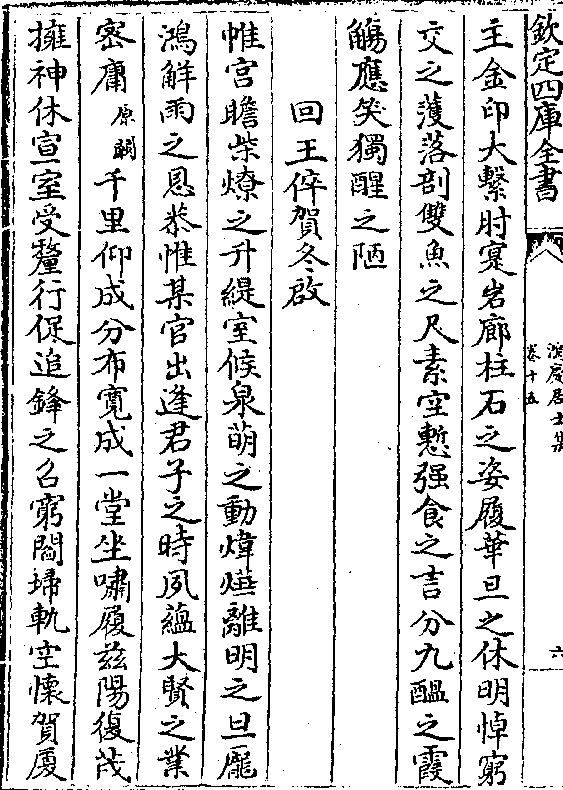 欽定四庫全書
演慶居士集
卷十五
六
主金印大繫肘寔岩廊柱石之姿履華旦之休明悼窮
交之濩落剖雙魚之尺素空慙强食之吉分九醞之霞
觴應笑獨醒之陋
回王倅賀冬啟
帷宮瞻柴燎之升緹室候泉萌之動煒燁離明之旦龎
鴻解雨之恩恭惟某官出逢君子之時夙蘊大賢之業
密庸原闕千里仰成分布寛成一堂坐嘯履兹陽復茂
擁神休宣室受釐行促追鋒之召窮閻埽軌空懷賀厦